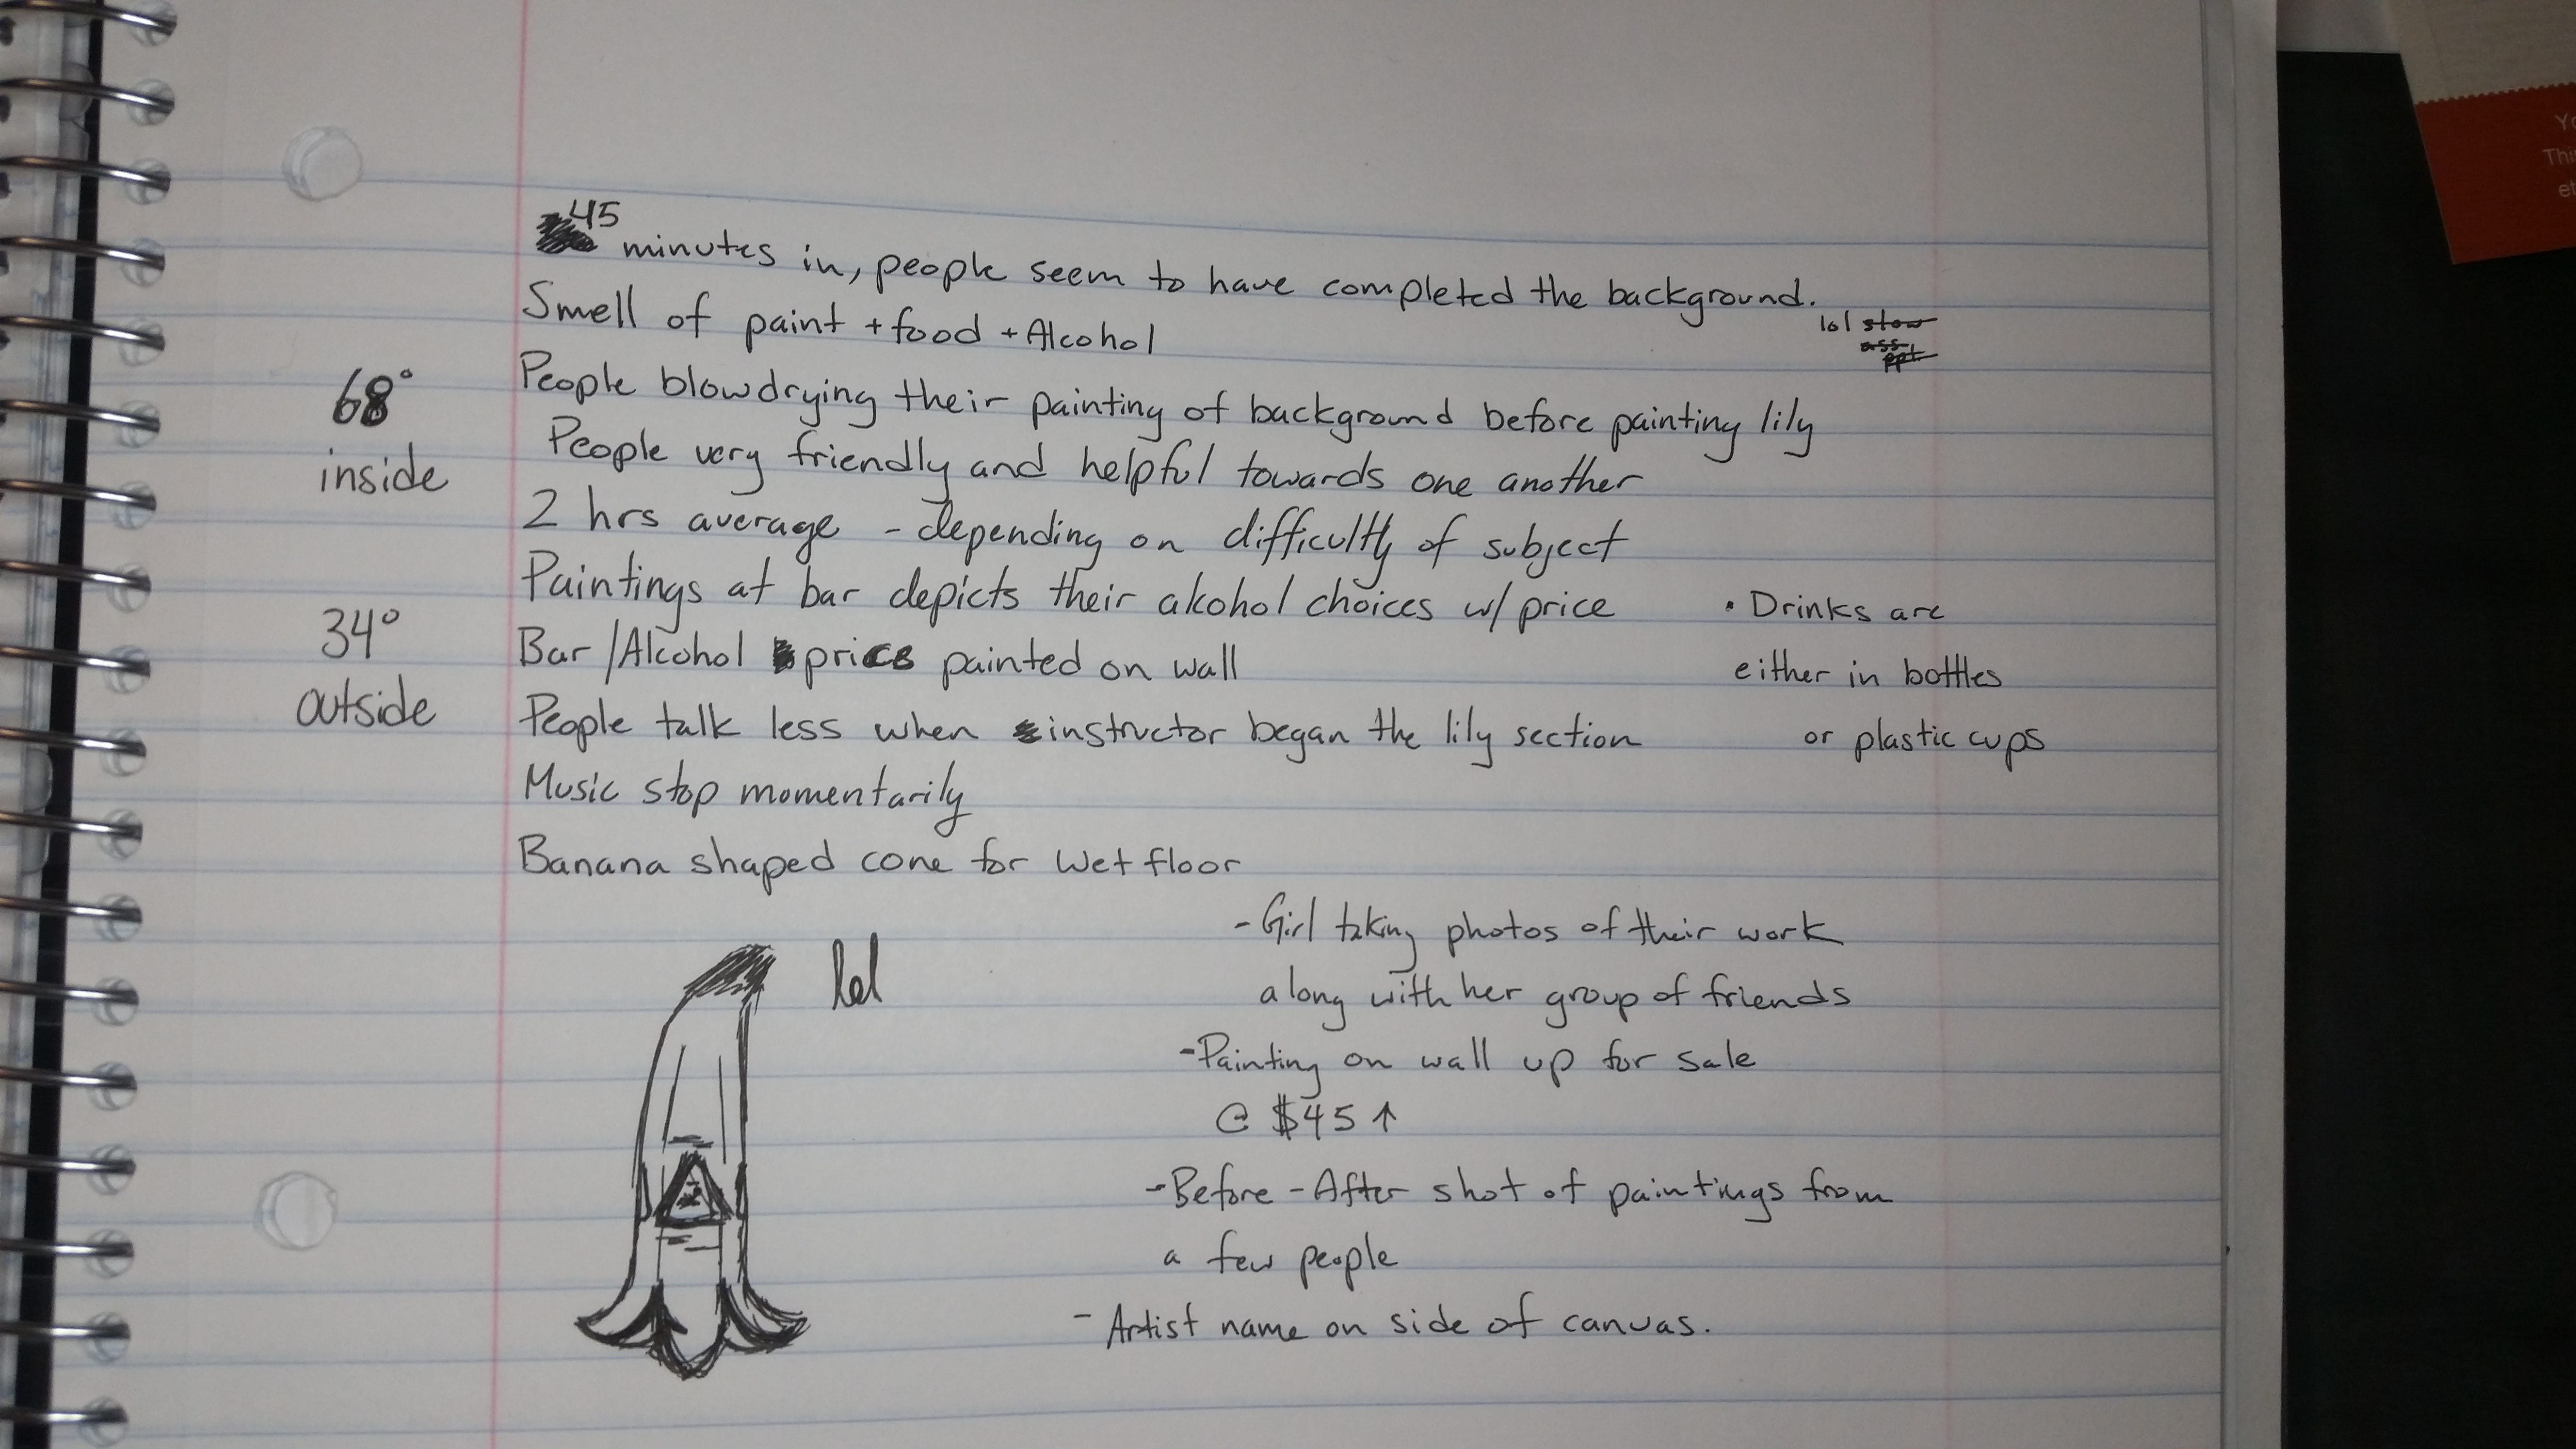 45
minutes in, people seem to have completed the background.
lol slow
ass
ppl
Smell of paint + food + Alcohol
People blowdrying their painting of background before painting lily
68°
inside
People very friendly and helpful towards one another
2 hrs average - depending on difficultly of subject
Paintings at bar depicts their alcohol choices w/ price
34°
outside
Bar/Alcohol prices painted on wall
• Drinks are
either in bottles
or plastic cups
People talk less when instructor began the lily section
Music stop momentarily
Banana shaped cone for wet floor
lol
- Girl taking photos of their work
along with her group of friends
- Painting on wall up for sale
@ $45 ↑
- Before - After shot of paintings from
a few people
- Artist name on side of canvas.